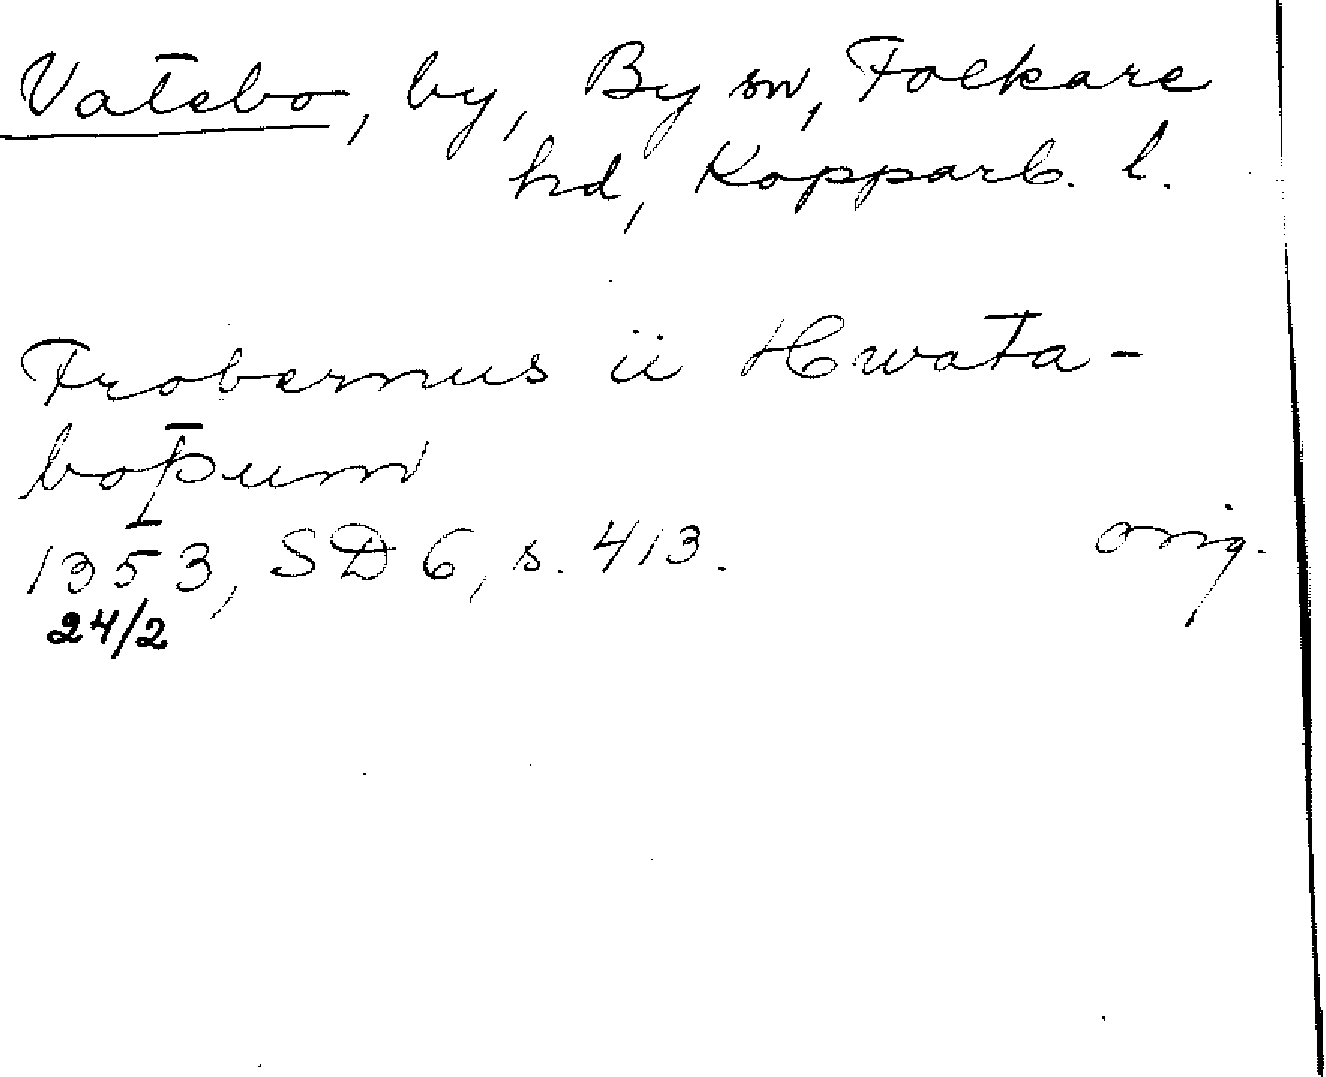 Vatebo, by, By sn, Folkare
hd, Kopparb. l.
Frobernus ii Hwata-
boþum
1353, SD 6, s. 413. orig.
24/2